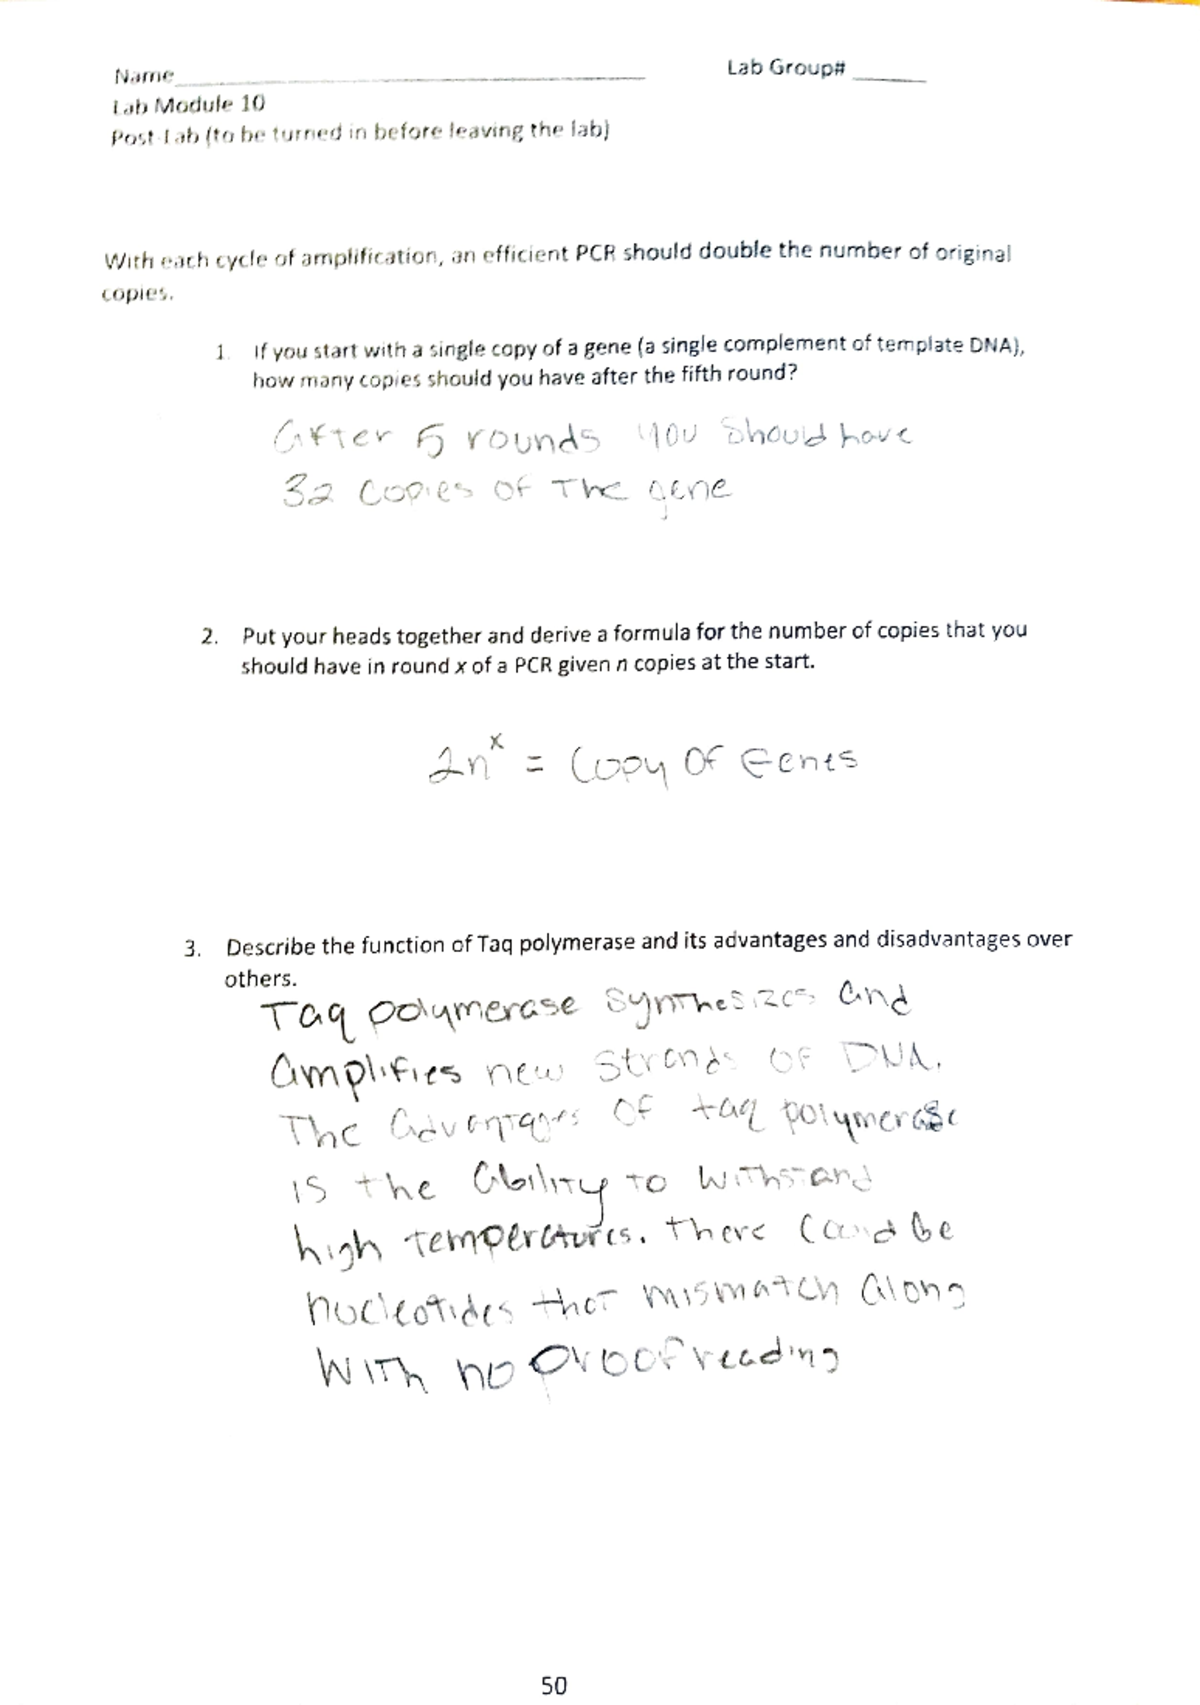 Name Lab Group#
Lab Module 10
Post-Lab (to be turned in before leaving the lab)
With each cycle of amplification, an efficient PCR should double the number of original
copies.
1. If you start with a single copy of a gene (a single complement of template DNA),
how many copies should you have after the fifth round?
After 5 rounds you should have
32 copies of The gene
2. Put your heads together and derive a formula for the number of copies that you
should have in round x of a PCR given n copies at the start.
2nˣ = Copy of Genes
3. Describe the function of Taq polymerase and its advantages and disadvantages over
others.
Taq polymerase synthesizes and
amplifies new strands of DNA.
The advantages of taq polymerase
is the ability to withstand
high temperatures. There could be
nucleotides that mismatch along
with no proofreading
50